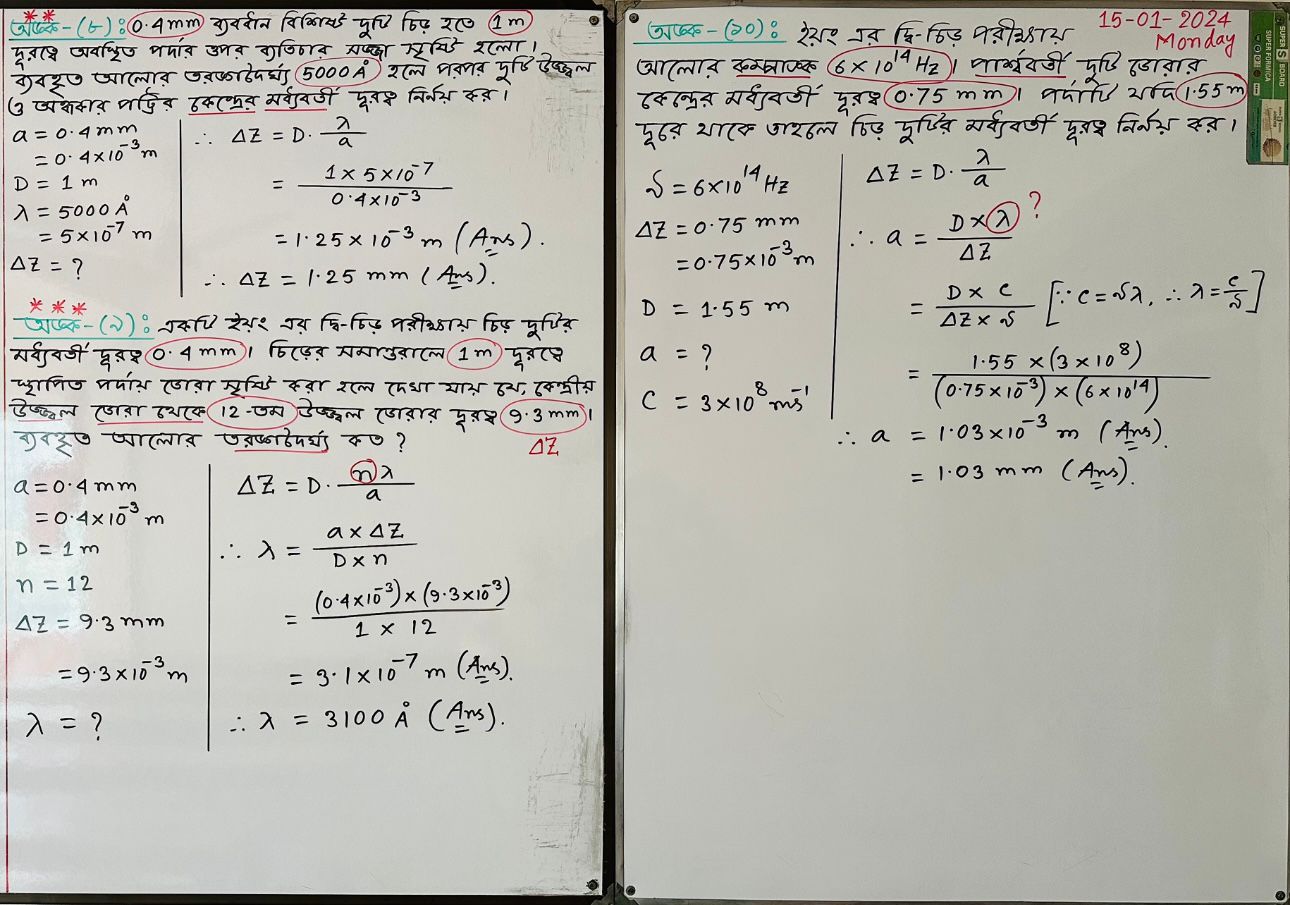 ** অঙ্ক-(৮): 0.4 mm ব্যবধান বিশিষ্ট দুটি চিড় হতে 1m
দূরত্বে অবস্থিত পর্দার উপর ব্যতিচার সজ্জা সৃষ্টি হলো।
ব্যবহৃত আলোর তরঙ্গদৈর্ঘ্য 5000 Å হলে পরপর দুটি উজ্জ্বল
ও অন্ধকার পট্টির কেন্দ্রের মধ্যবর্তী দূরত্ব নির্ণয় কর।
a = 0.4 mm
= 0.4×10⁻³ m
D = 1 m
λ = 5000 Å
= 5×10⁻⁷ m
ΔZ = ?
∴ ΔZ = D. λ/a
= (1 × 5×10⁻⁷)/(0.4×10⁻³)
= 1.25 × 10⁻³ m (Ans).
∴ ΔZ = 1.25 mm (Ans).
*** অঙ্ক-(৯): একটি ইয়ং এর দ্বি-চিড় পরীক্ষায় চিড় দুটির
মধ্যবর্তী দূরত্ব 0.4 mm। চিড়ের সমান্তরালে 1m দূরত্বে
স্থাপিত পর্দায় ডোরা সৃষ্টি করা হলে দেখা যায় যে, কেন্দ্রীয়
উজ্জ্বল ডোরা থেকে 12-তম উজ্জ্বল ডোরার দূরত্ব 9.3 mm।
ব্যবহৃত আলোর তরঙ্গদৈর্ঘ্য কত ? ΔZ
a = 0.4 mm
= 0.4×10⁻³ m
D = 1 m
n = 12
ΔZ = 9.3 mm
= 9.3×10⁻³ m
λ = ?
ΔZ = D. nλ/a
∴ λ = (a × ΔZ)/(D × n)
= ((0.4×10⁻³) × (9.3×10⁻³))/(1 × 12)
= 3.1×10⁻⁷ m (Ans).
∴ λ = 3100 Å (Ans).
15-01-2024
Monday
SUPER S BOARD
SUPER FORMICA
অঙ্ক-(১০): ইয়ং এর দ্বি-চিড় পরীক্ষায়
আলোর কম্পাঙ্ক 6×10¹⁴ Hz। পার্শ্ববর্তী দুটি ডোরার
কেন্দ্রের মধ্যবর্তী দূরত্ব 0.75 mm। পর্দাটি যদি 1.55 m
দূরে থাকে তাহলে চিড় দুটির মধ্যবর্তী দূরত্ব নির্ণয় কর।
𝜈 = 6×10¹⁴ Hz
ΔZ = 0.75 mm
= 0.75×10⁻³ m
D = 1.55 m
a = ?
C = 3×10⁸ ms⁻¹
ΔZ = D. λ/a
∴ a = (D × λ)/ΔZ ?
= (D × c)/(ΔZ × 𝜈) [∵ c = 𝜈λ, ∴ λ = c/𝜈]
= (1.55 × (3×10⁸))/((0.75×10⁻³) × (6×10¹⁴))
∴ a = 1.03×10⁻³ m (Ans).
= 1.03 mm (Ans).